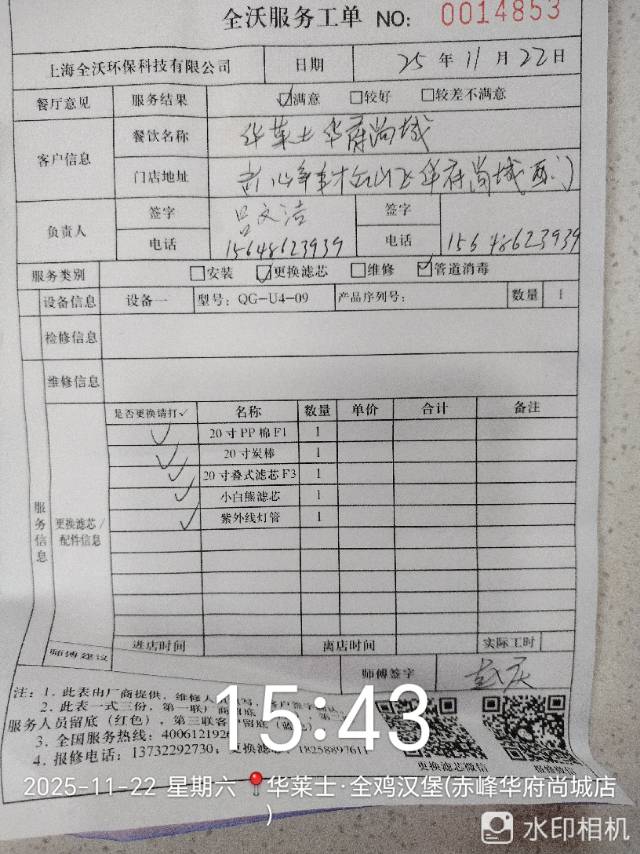 全沃服务工单 NO: 0014853
上海全沃环保科技有限公司 日期 25 年 11 月 22 日
餐厅意见 服务结果 ☑满意 □较好 □较差不满意
客户信息 餐饮名称 华莱士华府尚城
门店地址 华府尚城西门
负责人 签字 吕文洁 签字
电话 15648623939 电话 15648623939
服务类别 □安装 ☑更换滤芯 □维修 ☑管道消毒
设备信息 设备一 型号: QG-U4-09 产品序列号: 数量 1
检修信息
维修信息
服务信息 更换滤芯/配件信息 是否更换请打✓ 名称 数量 单价 合计 备注
✓ 20寸PP棉F1 1
✓ 20寸炭棒 1
✓ 20寸叠式滤芯F3 1
✓ 小白熊滤芯 1
✓ 紫外线灯管 1
进店时间 离店时间 实际工时
师傅建议 师傅签字
注: 1. 此表由厂商提供, 维修人
2. 此表一式三份, 第一联厂商留底
服务人员留底（红色）, 第三联客户留底
3. 全国服务热线: 4006121926
4. 报修电话: 13732292730, 更换滤芯
更换滤芯微信 报修微信
15:43
2025-11-22 星期六 华莱士·全鸡汉堡(赤峰华府尚城店
)
水印相机